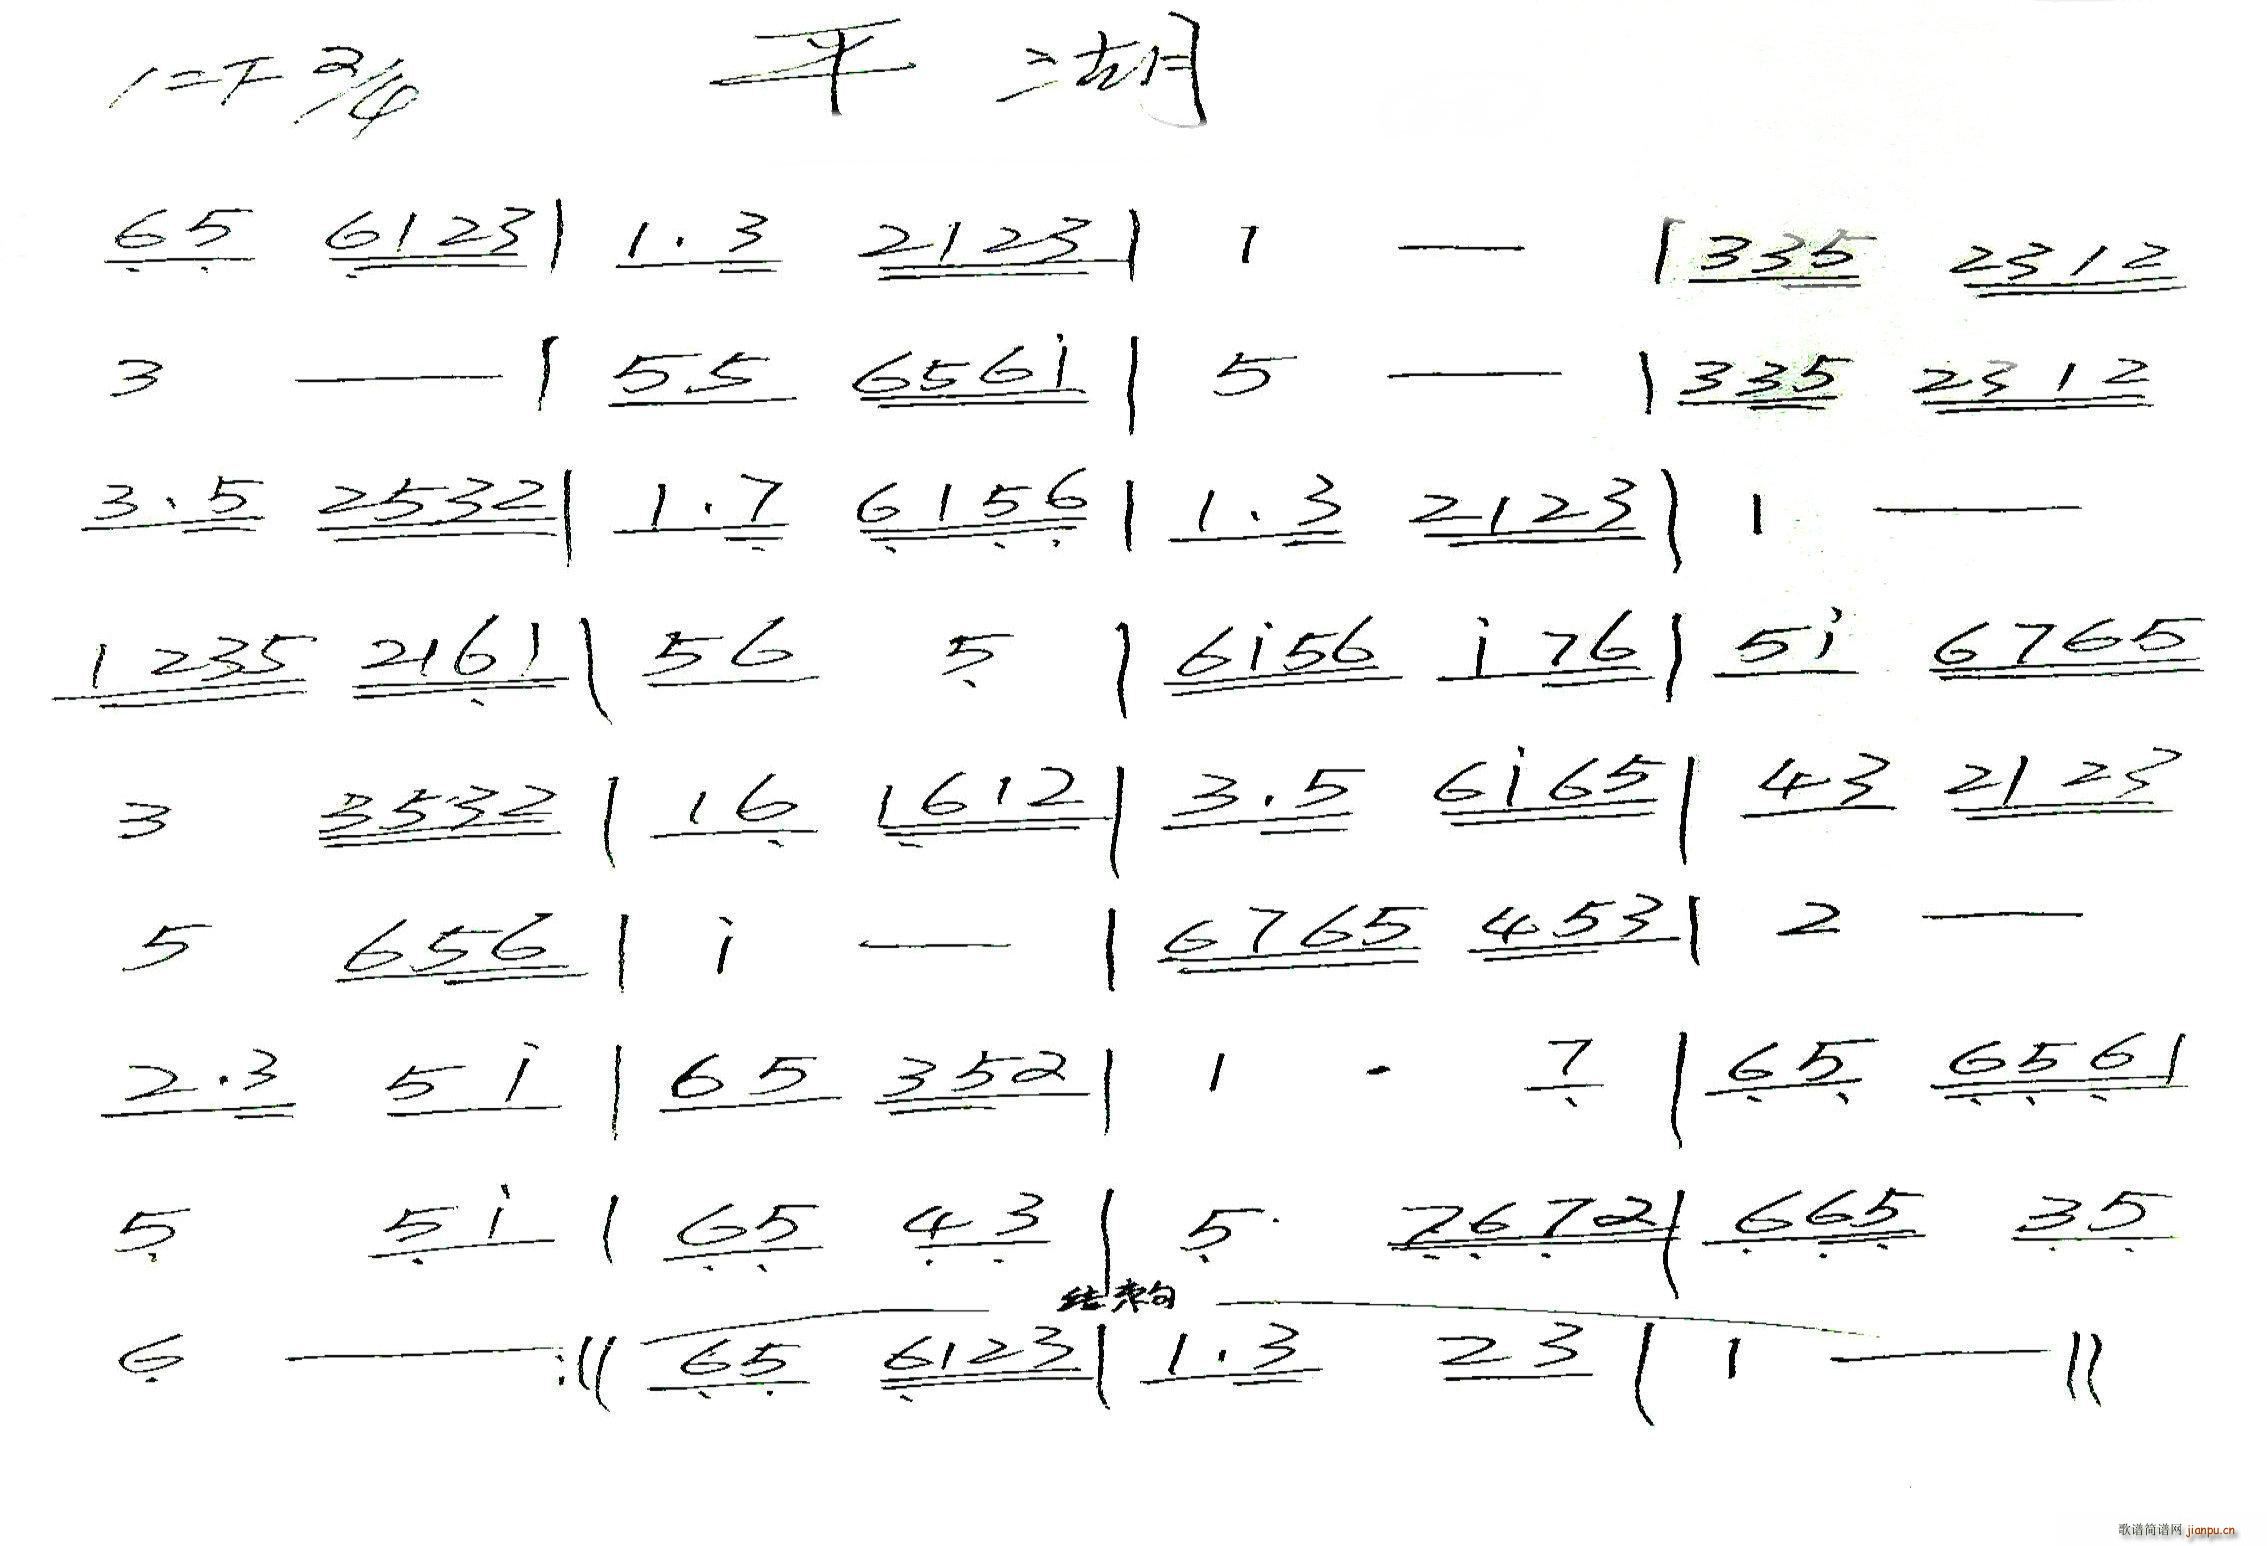 1=F 2/4 平湖
65 6123 | 1.3 2123 | 1 — | 335 2312
3 — | 55 6561 | 5 — | 335 2312
3.5 2532 | 1.7 6156 | 1.3 2123 | 1 —
1235 2161 | 56 5 | 6i56 i76 | 5i 6765
3 3532 | 16 1612 | 3.5 6i65 | 43 2123
5 656 | i — | 6765 453 | 2 —
2.3 5i | 65 352 | 1 · 7 | 65 6561
5 5i | 65 43 | 5· 7672 | 665 35
结束句
6 — :‖ 65 6123 | 1.3 23 | 1 — ‖
歌谱简谱网 jianpu.cn